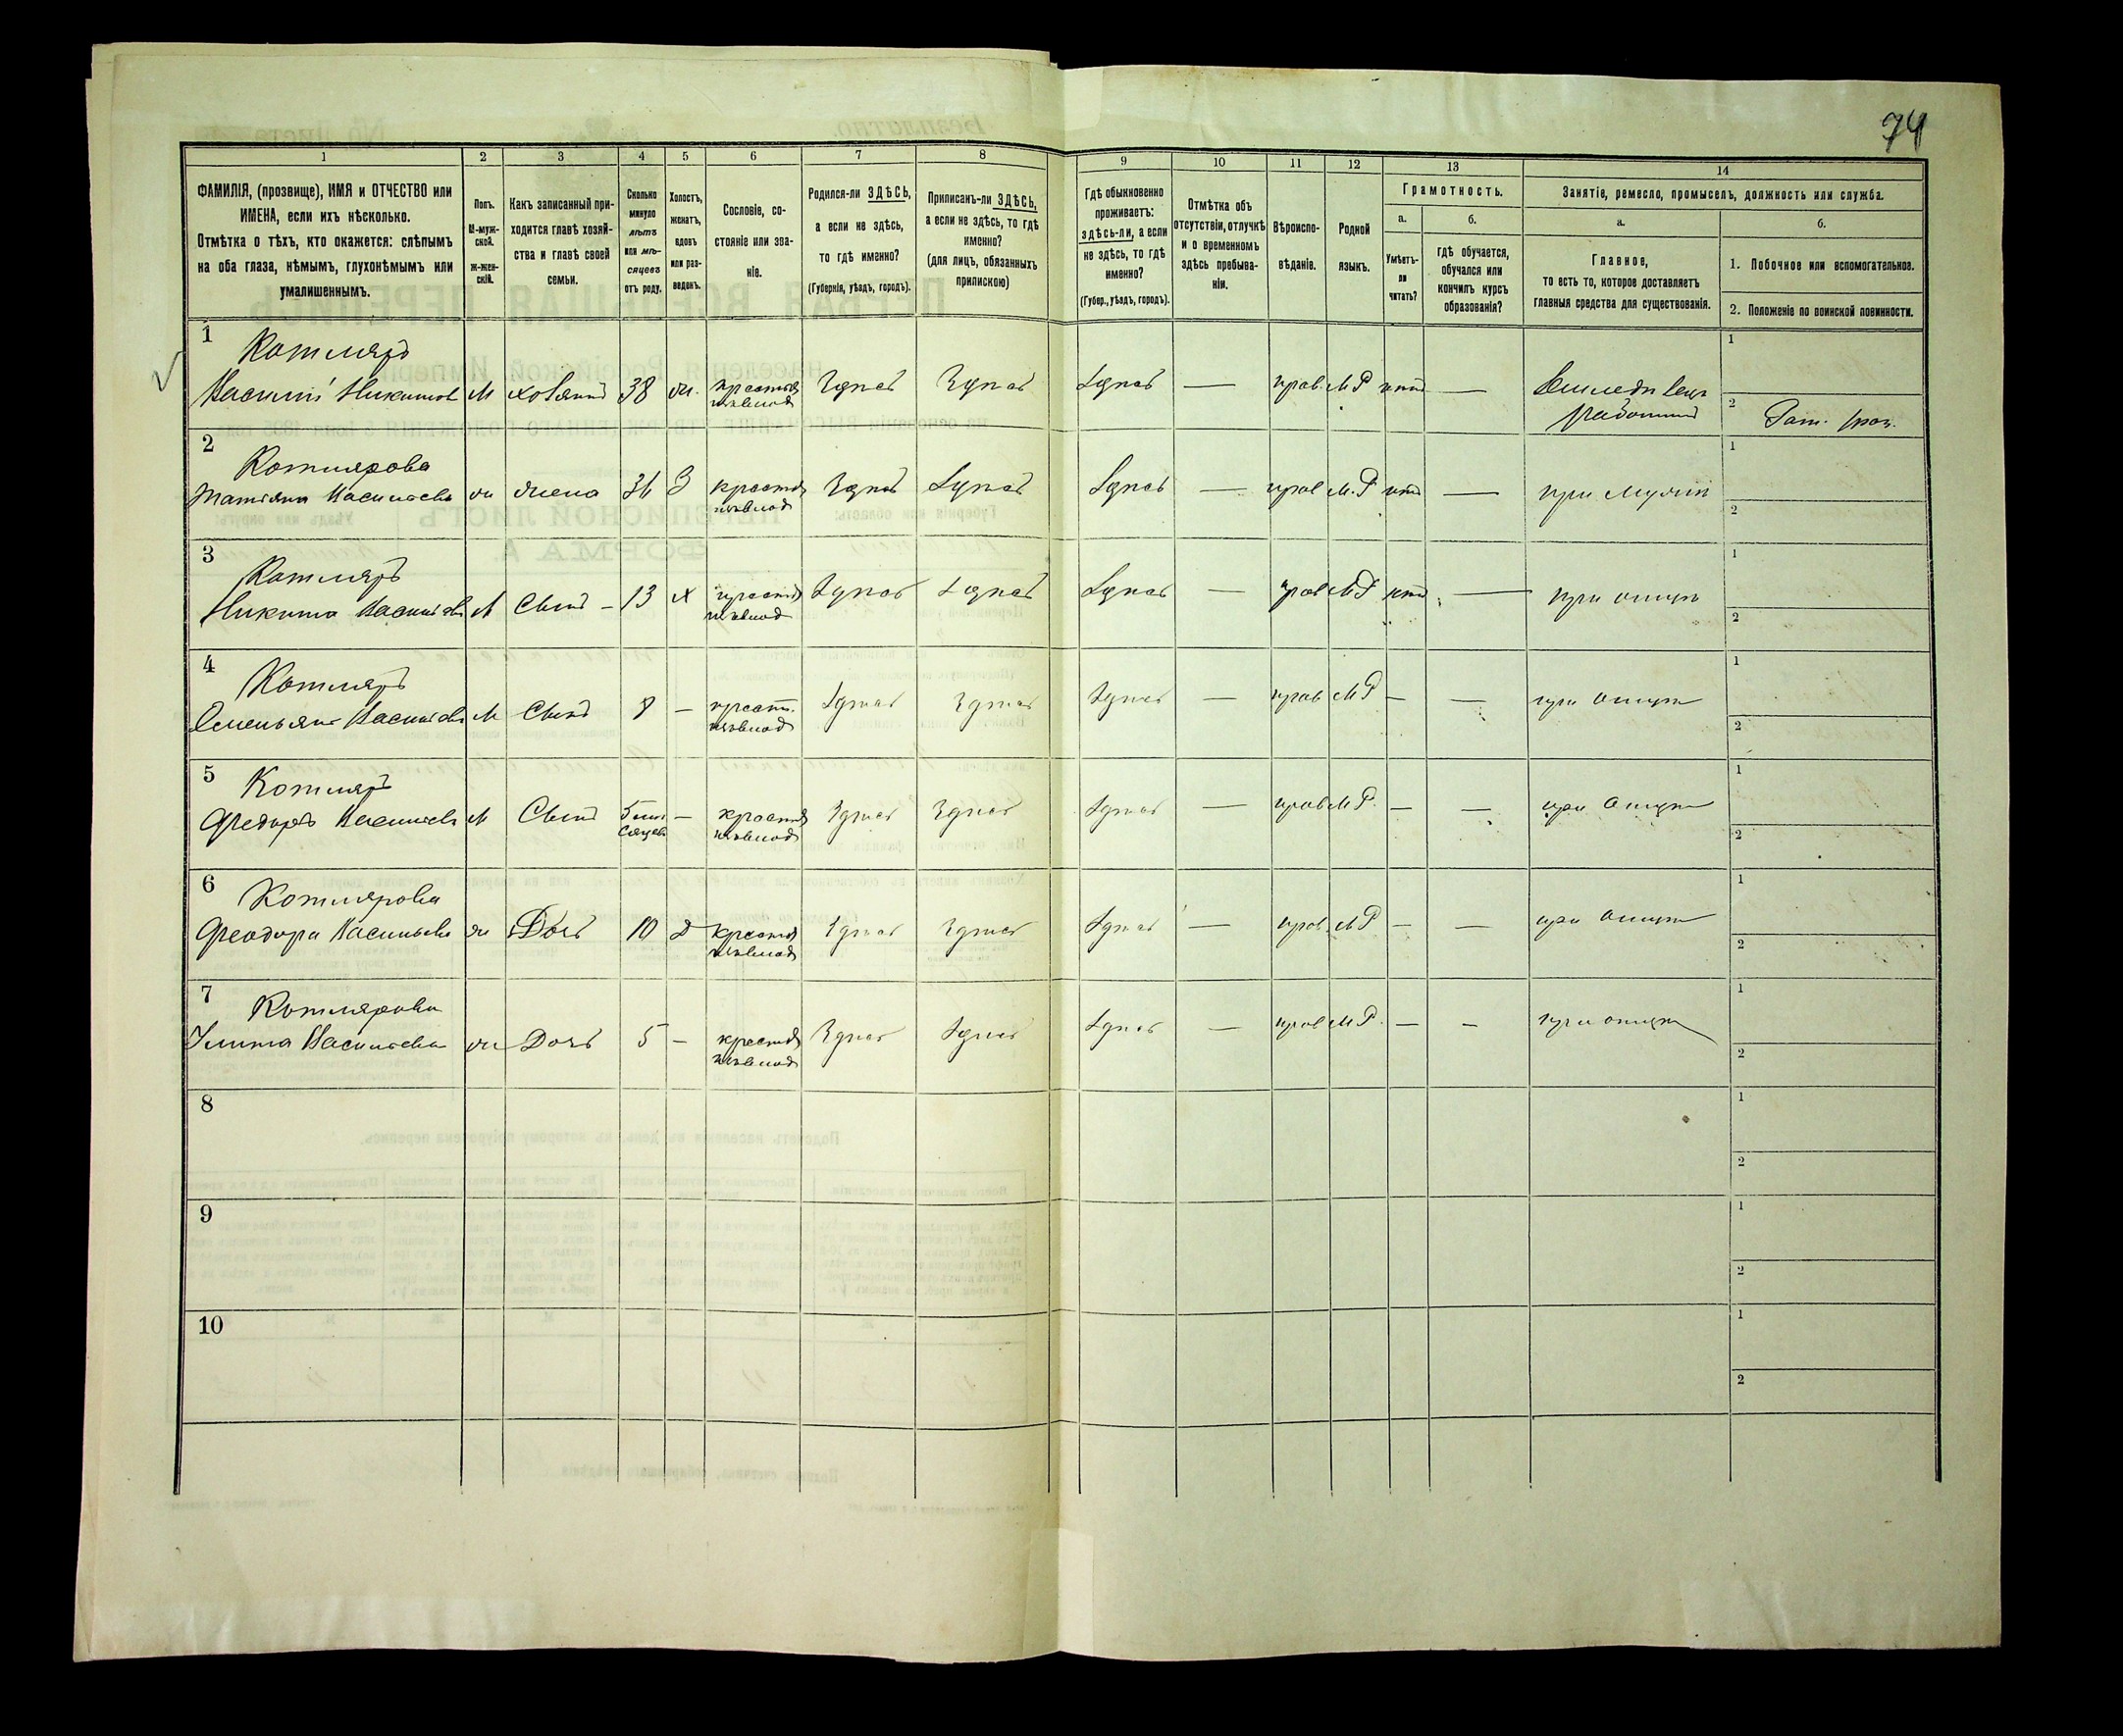 74
1 2 3 4 5 6 7 8 9 10 11 12 13 14
ФАМИЛІЯ, (прозвище), ИМЯ и ОТЧЕСТВО или
ИМЕНА, если ихъ нѣсколько.
Отмѣтка о тѣхъ, кто окажется: слѣпымъ
на оба глаза, нѣмымъ, глухонѣмымъ или
умалишеннымъ.
Полъ.
М-муж-
ской.
Ж-жен-
скій.
Какъ записанный при-
ходится главѣ хозяй-
ства и главѣ своей
семьи.
Сколько
минуло
лѣтъ
или мѣ-
сяцевъ
отъ роду.
Холостъ,
женатъ,
вдовъ
или раз-
веденъ.
Сословіе, со-
стояніе или зва-
ніе.
Родился-ли ЗДѢСЬ,
а если не здѣсь,
то гдѣ именно?
(Губернія, уѣздъ, городъ).
Приписанъ-ли ЗДѢСЬ,
а если не здѣсь, то гдѣ
именно?
(для лицъ, обязанныхъ
припискою)
Гдѣ обыкновенно
проживаетъ:
здѣсь-ли, а если
не здѣсь, то гдѣ
именно?
(Губер., уѣздъ, городъ).
Отмѣтка объ
отсутствіи, отлучкѣ
и о временномъ
здѣсь пребыва-
ніи.
Вѣроиспо-
вѣданіе.
Родной
языкъ.
Грамотность.
а.
Умѣетъ-
ли
читать?
б.
Гдѣ обучается,
обучался или
кончилъ курсъ
образованія?
Занятіе, ремесло, промыселъ, должность или служба.
а.
Главное,
то есть то, которое доставляетъ
главныя средства для существованія.
б.
1. Побочное или вспомогательное.
2. Положеніе по воинской повинности.
1 Котляръ
Василій Никитовъ М хозяинъ 38 ж. крестья Здѣсь Здѣсь Здѣсь — прав. М Р нѣтъ —
1
2
2 Котлярова
Татьяна Васильева ж жена З крестья Здѣсь Здѣсь Здѣсь — прав М. Р нѣтъ — при мужѣ
1
2
3 Котляръ
Никита Васильевъ М Сынъ – 13 х крестья Здѣсь Здѣсь Здѣсь — прав М Р нѣтъ — при отцѣ
1
2
4 Котляръ
Емельянъ Васильевъ М Сынъ 8 — крест. Здѣсь Здѣсь Здѣсь — прав М Р — — при отцѣ
1
2
5 Котляръ
Федоръ Васильевъ М Сынъ 5 мѣ — крестья Здѣсь Здѣсь Здѣсь — прав М Р. — — при отцѣ
сяцев
1
2
6 Котлярова
Феодора Васильева ж Дочь 10 Д крестья Здѣсь Здѣсь Здѣсь — прав. М Р — — при отцѣ
1
2
7 Котлярова
Улита Васильева ж Дочь 5 — крестья Здѣсь Здѣсь Здѣсь — прав М Р. — – при отцѣ
1
2
8
1
2
9
1
2
10
1
2